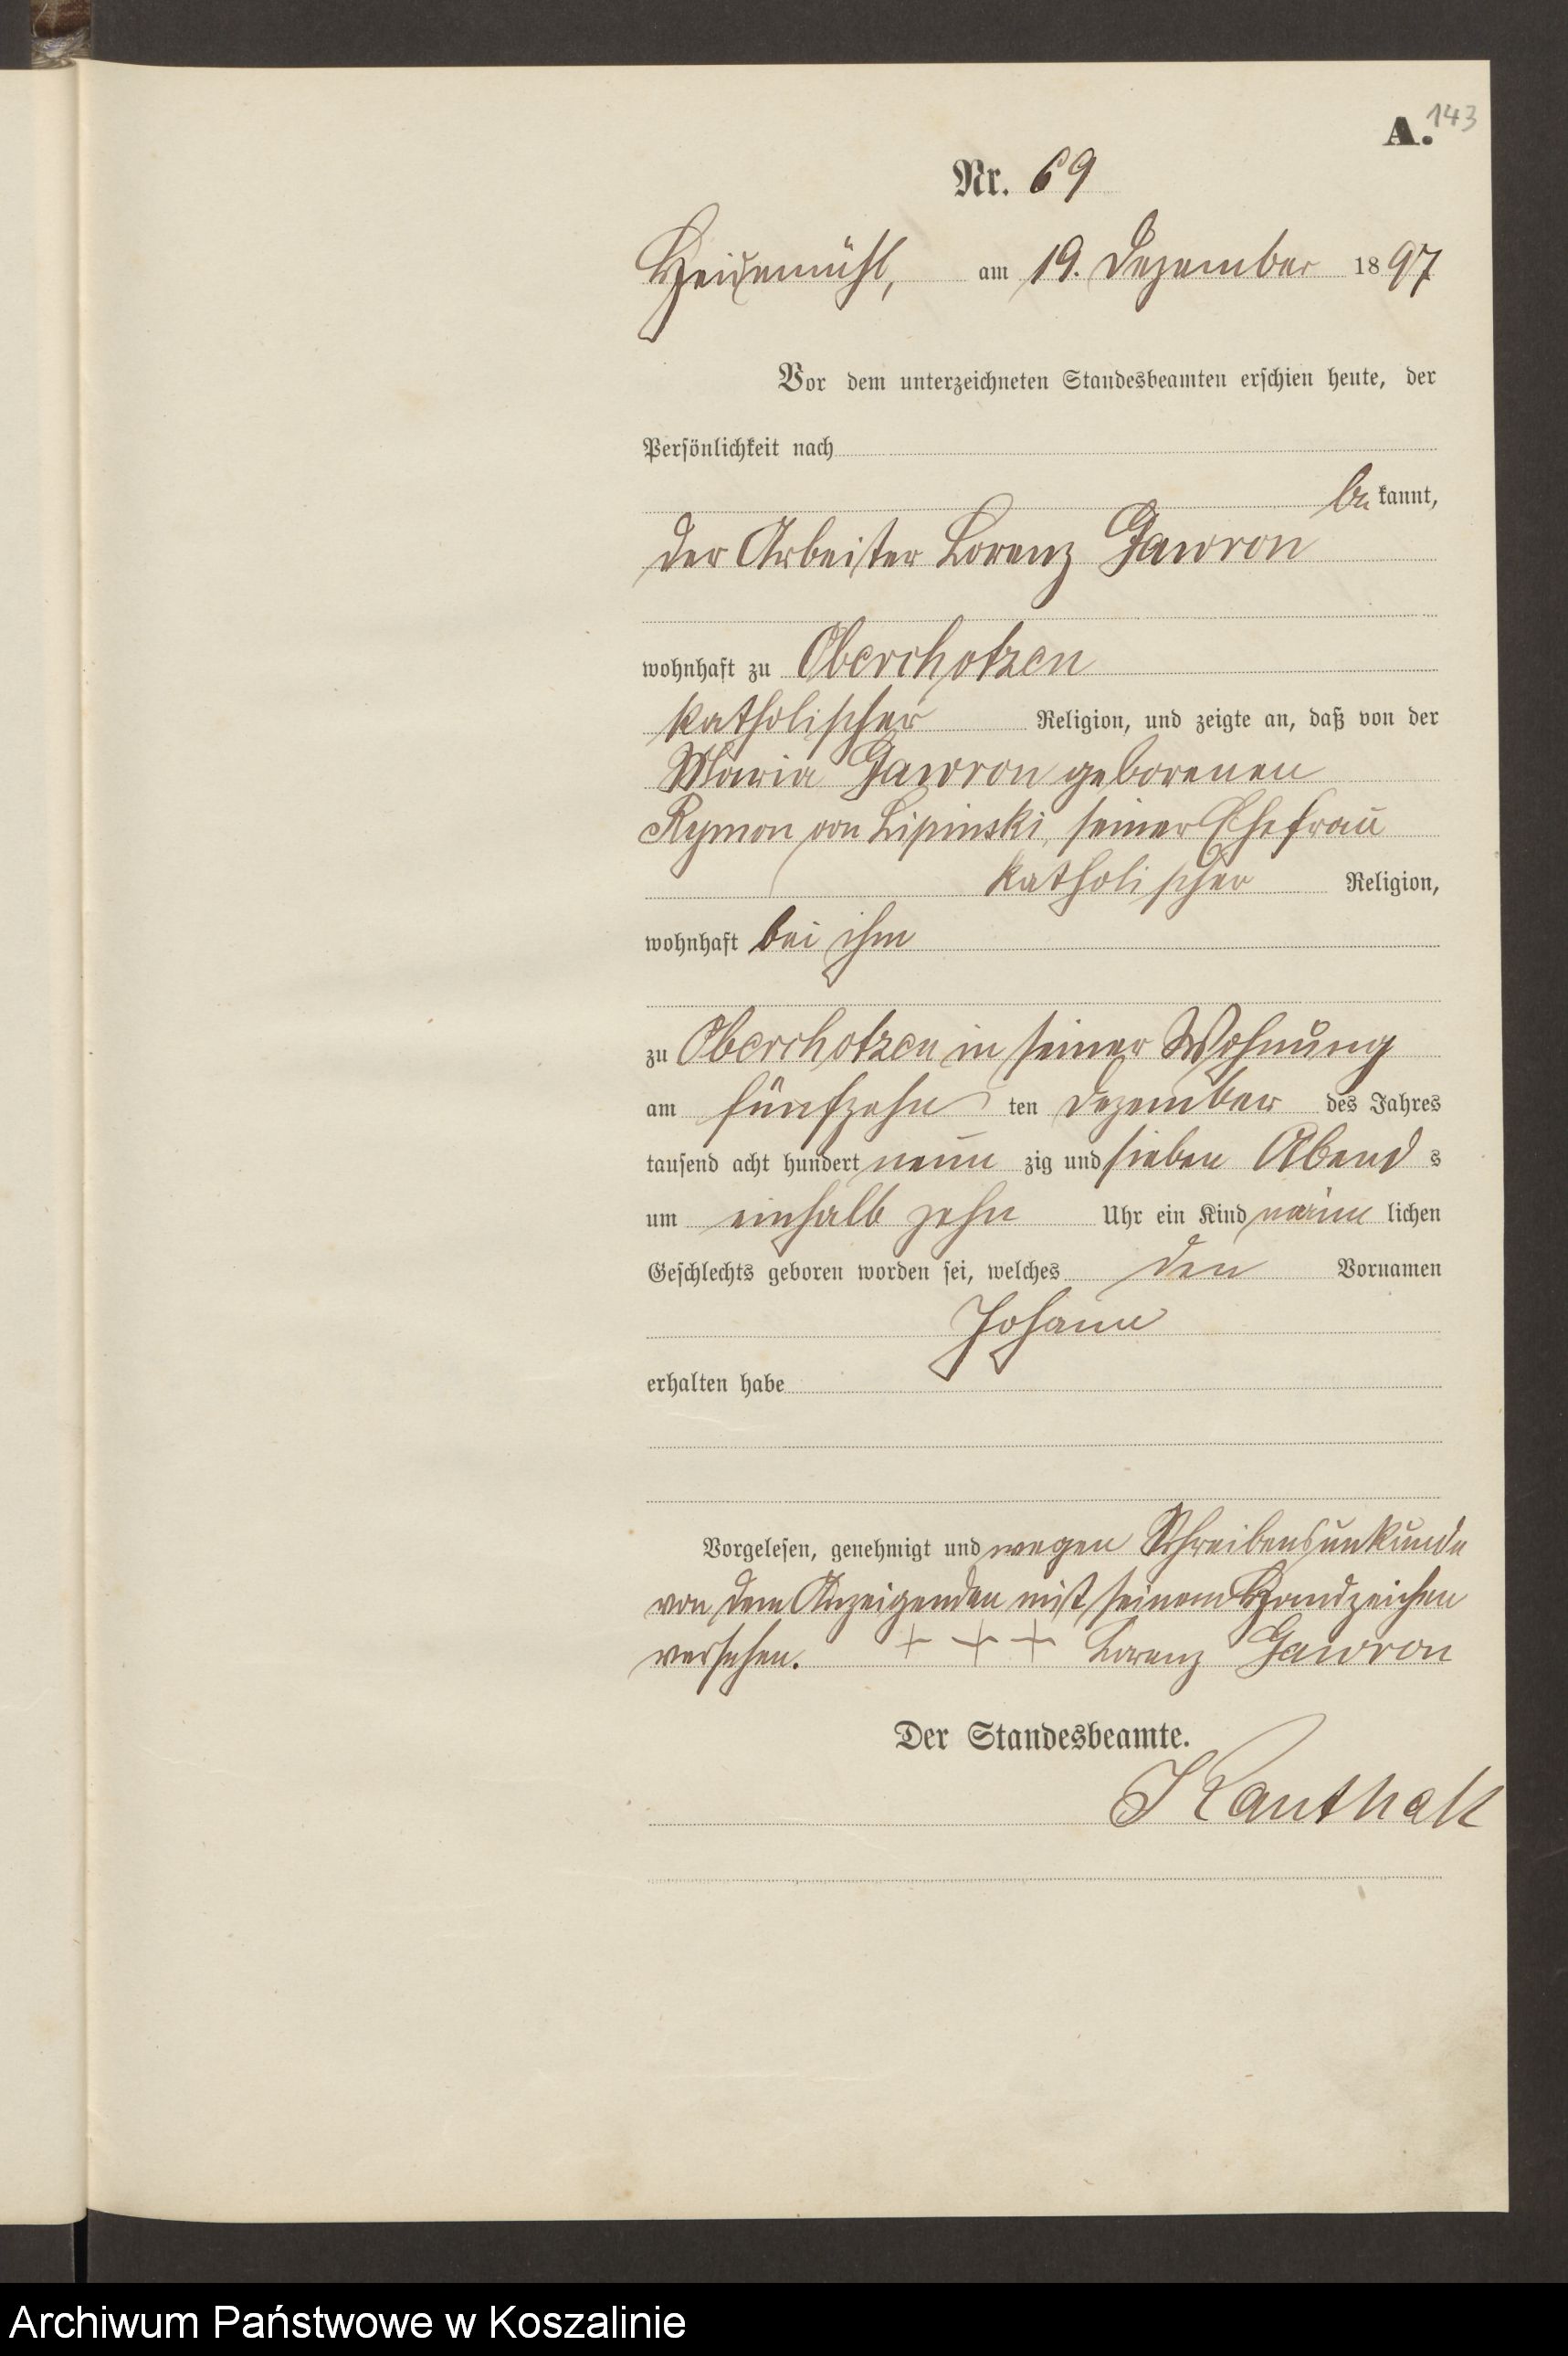 143
A.
Nr. 69
Heidemühl, am 19. Dezember 1897
Vor dem unterzeichneten Standesbeamten erschien heute, der
Persönlichkeit nach
bekannt,
der Arbeiter Lorenz Gawron
wohnhaft zu Oberchotzen
katholischer Religion, und zeigte an, daß von der
Maria Gawron geborenen
Rymon von Lipinski, seiner Ehefrau
katholischer Religion,
wohnhaft bei ihm
zu Oberchotzen in seiner Wohnung
am fünfzehn ten Dezember des Jahres
tausend acht hundert neun zig und sieben Abend s
um einhalb zehn Uhr ein Kind männ lichen
Geschlechts geboren worden sei, welches den Vornamen
Johann
erhalten habe
Vorgelesen, genehmigt und wegen Schreibensunkunde
von dem Anzeigenden mit seinem Handzeichen
versehen. + + + Lorenz Gawron
Der Standesbeamte.
Archiwum Państwowe w Koszalinie